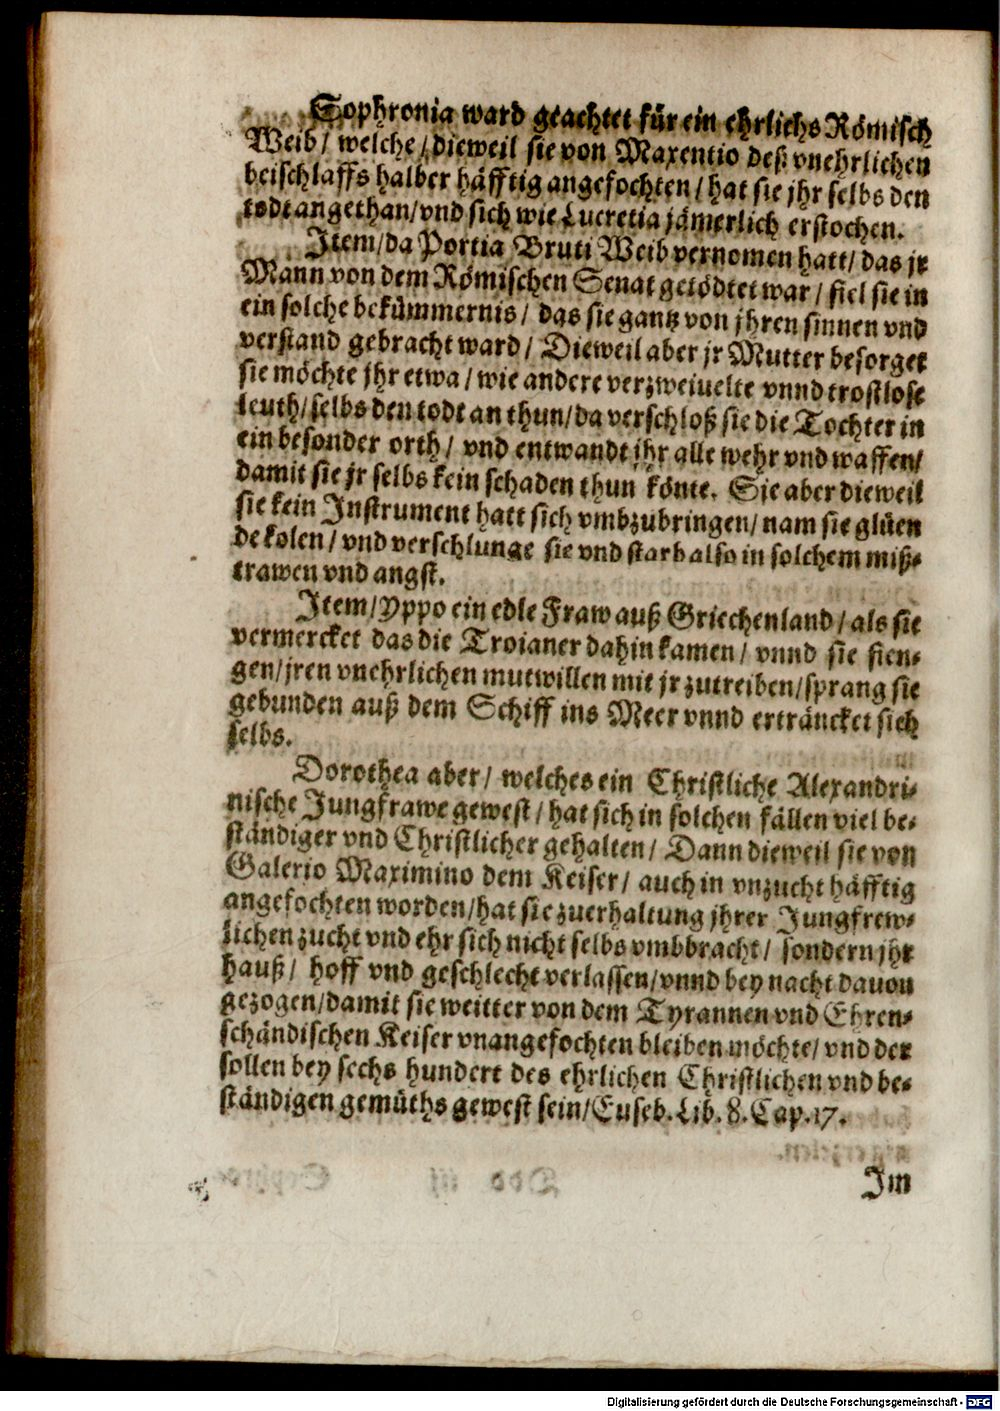 Sophronia ward geachtet für ein ehrlichs Römisch
Weib/ welche/ dieweil sie von Maxentio deß vnehrlichen
beischlaffs halber häfftig angefochten/ hat sie jhr selbs den
todt angethan/ vnd sich wie Lucretia jämerlich erstochen.
Item/ da Portia Bruti Weib vernomen hatt/ das jr
Mann von dem Römischen Senat getödtet war/ fiel sie in
ein solche bekümmernis/ das sie gantz von jhren sinnen vnd
verstand gebracht ward/ Dieweil aber jr Mutter besorget
sie möchte jhr etwa/ wie andere verzweiuelte vnnd trostlose
leuth/ selbs den todt an thun/ da verschloß sie die Tochter in
ein besonder orth/ vnd entwandt jhr alle wehr vnd waffen/
damit sie jr selbs kein schaden thun könte. Sie aber dieweil
sie kein Instrument hatt sich vmbzubringen/ nam sie glüen
de kolen/ vnd verschlunge sie vnd starb also in solchem miß-
trawen vnd angst.
Item/ Yppo ein edle Fraw auß Griechenland/ als sie
vermercket das die Troianer dahin kamen/ vnnd sie fien-
gen/ jren vnehrlichen mutwillen mit jr zutreiben/ sprang sie
gebunden auß dem Schiff ins Meer vnnd ertränket sich
selbs.
Dorothea aber/ welches ein Christliche Alexandri-
nische Jungfrawe gewest/ hat sich in solchen fällen viel be-
ständiger vnd Christlicher gehalten/ Dann dieweil sie von
Galerio Maximino dem Keiser/ auch in vnzucht häfftig
angefochten worden/ hat sie zuerhaltung jhrer Jungfrew-
lichen zucht vnd ehr sich nicht selbs vmbbracht/ sondern jhr
hauß/ hoff vnd geschlecht verlassen/ vnnd bey nacht dauon
gezogen/ damit sie weitter von dem Tyrannen vnd Ehren-
schändischen Keiser vnangefochten bleiben möchte/ vnd der
sollen bey sechs hundert des ehrlichen Christlichen vnd be-
ständigen gemüths gewest sein/ Euseb. Lib. 8. Cap. 17.
Im
Digitalisierung gefördert durch die Deutsche Forschungsgemeinschaft - DFG